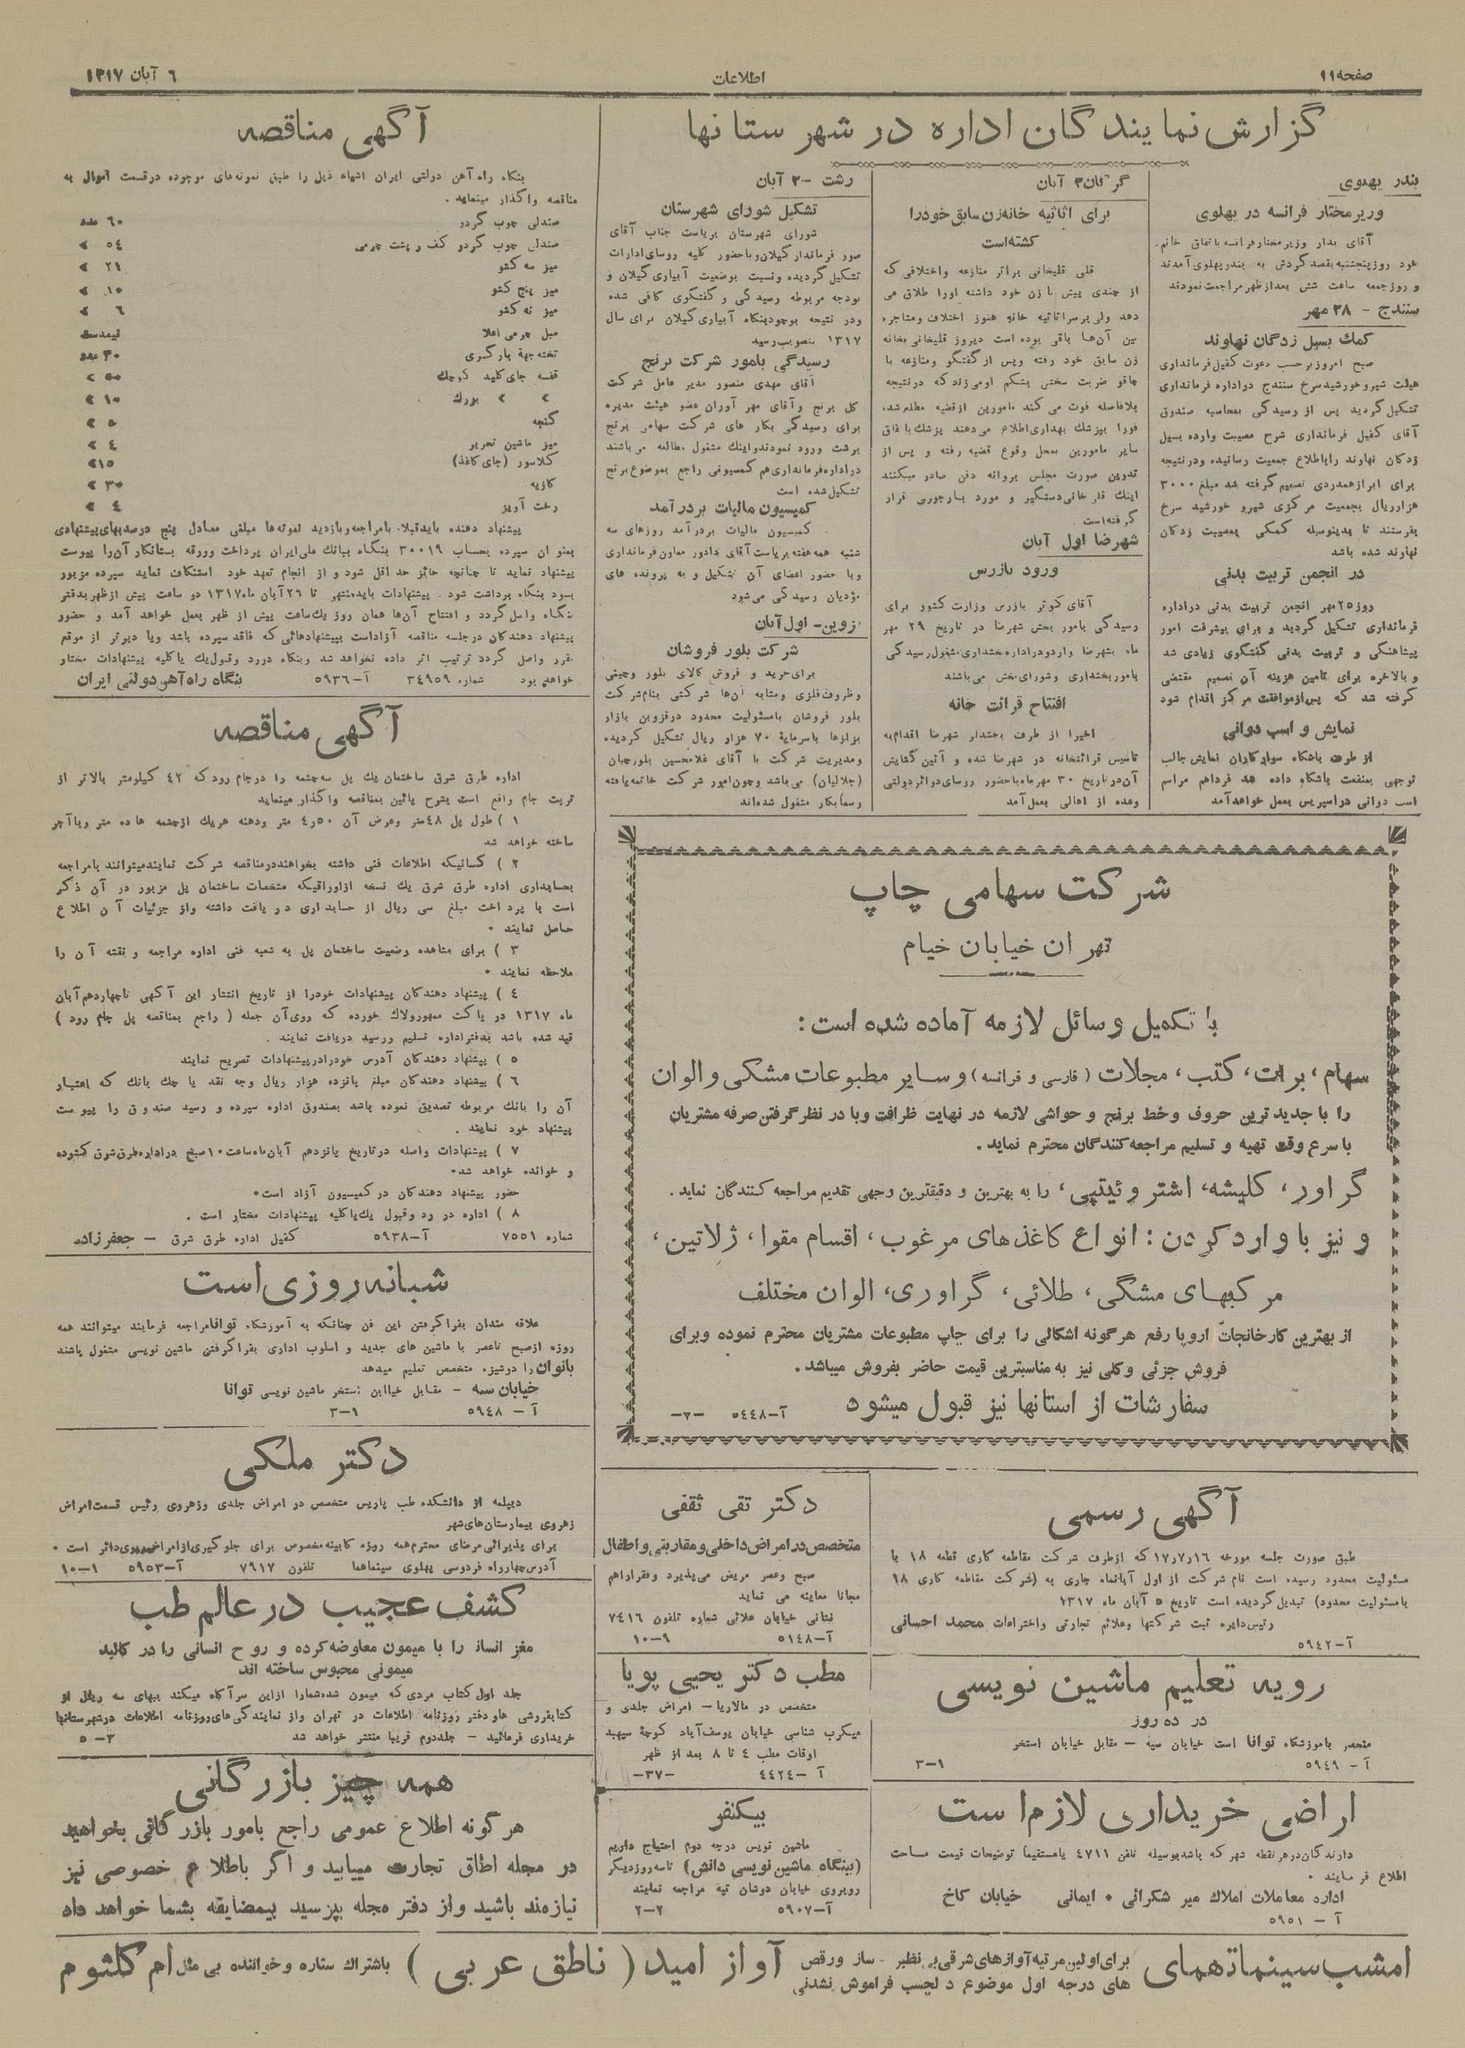 صفحه ۱۱
اطلاعات
۶ آبان ۱۳۱۷
گزارش نمایندگان اداره در شهرستانها
بندر پهلوی
وزیر مختار فرانسه در پهلوی
آقای بدار وزیر مختار فرانسه باتفاق خانم
خود روز پنجشنبه بقصد گردش به بندر پهلوی آمدند
و روز جمعه ساعت شش بعد از ظهر مراجعت نمودند
سنندج - ۲۸ مهر
کمک بسیل زدگان نهاوند
صبح امروز بر حسب دعوت کفیل فرمانداری
هیئت شیر و خورشید سرخ سنندج در اداره فرمانداری
تشکیل گردید پس از رسیدگی بمحاسبه صندوق
آقای کفیل فرمانداری شرح مصیبت وارده بسیل
زدگان نهاوند را باطلاع جمعیت رسانیده و در نتیجه
برای ابراز همدردی تصمیم گرفته شد مبلغ ۳۰۰۰
هزار ریال بجمعیت مرکزی شیر و خورشید سرخ
بفرستند تا بدینوسیله کمکی بمصیبت زدگان
نهاوند شده باشد
در انجمن تربیت بدنی
روز ۲۵ مهر انجمن تربیت بدنی در اداره
فرمانداری تشکیل گردید و برای پیشرفت امور
پیشاهنگی و تربیت بدنی گفتگوی زیادی شد
و بالاخره برای تامین هزینه آن تصمیم مقتضی
گرفته شد که پس از موافقت مرکز اقدام شود
نمایش و اسب دوانی
از طرف باشگاه سوار کاران نمایش جالب
توجهی بمنفعت باشگاه داده شد فردا هم مراسم
اسب دوانی در اسپریس بعمل خواهد آمد
گرگان ۳ آبان
برای اثاثیه خانه زن سابق خود را
کشته است
قلی قلیخانی براثر منازعه و اختلافی که
از چندی پیش با زن خود داشته اورا طلاق می
دهد ولی بر سر اثاثیه خانه هنوز اختلاف و مشاجره
بین آنها باقی بوده است دیروز قلیخانی بخانه
زن سابق خود رفته و پس از گفتگو و منازعه با
چاقو ضربت سختی بشکم او می زند که در نتیجه
بلافاصله فوت می کند مامورین از قضیه مطلع شده
فورا بپزشک بهداری اطلاع می دهند پزشک باتفاق
سایر مامورین بمحل وقوع قضیه رفته و پس از
تدوین صورت مجلس پروانه دفن صادر میکنند
اینک قلی خانی دستگیر و مورد بازجوئی قرار
گرفته است.
شهرضا اول آبان
ورود بازرس
آقای کوثر بازرس وزارت کشور برای
رسیدگی بامور بخش شهرضا در تاریخ ۲۹ مهر
ماه بشهرضا وارد و در اداره بخشداری مشغول رسیدگی
بامور بخشداری و شورای بخش می باشند
افتتاح قرائت خانه
اخیرا از طرف بخشدار شهرضا اقدام به
تاسیس قرائتخانه در شهرضا شده و آئین گشایش
آن در تاریخ ۳۰ مهر ماه با حضور روسای دوائر دولتی
وعده از اهالی بعمل آمد
رشت - ۲ آبان
تشکیل شورای شهرستان
شورای شهرستان بریاست جناب آقای
صور فرماندار گیلان و با حضور کلیه روسای ادارات
تشکیل گردیده و نسبت بوضعیت آبیاری گیلان و
بودجه مربوطه رسیدگی و گفتگوی کافی شده
و در نتیجه بودجه بنگاه آبیاری گیلان برای سال
۱۳۱۷ بتصویب رسید
رسیدگی بامور شرکت برنج
آقای مهدی منصور مدیر عامل شرکت
کل برنج و آقای مهر آوران عضو هیئت مدیره
برای رسیدگی بکار های شرکت سهامی برنج
برشت ورود نمودند و اینک مشغول مطالعه می باشند
در اداره فرمانداری هم کمسیونی راجع بموضوع برنج
تشکیل شده است
کمیسیون مالیات بر درآمد
کمسیون مالیات بر درآمد روزهای سه
شنبه همه هفته بریاست آقای دادور معاون فرمانداری
و با حضور اعضای آن تشکیل و به پرونده های
مؤدیان رسیدگی می شود
قزوین - اول آبان
شرکت بلور فروشان
برای خرید و فروش کالای بلور و چینی
و ظروف فلزی و مشابه آنها شرکتی بنام شرکت
بلور فروشان با مسئولیت محدود در قزوین بازار
بزازها با سرمایهٔ ۷۰ هزار ریال تشکیل گردیده
و مدیریت شرکت با آقای غلامحسین بلورچیان
(جلالیان) می باشد و چون امور شرکت خاتمه یافته
رسماً بکار مشغول شده اند
شرکت سهامی چاپ
تهران خیابان خیام
با تکمیل وسائل لازمه آماده شده است:
سهام، برات، کتب، مجلات (فارسی و فرانسه) و سایر مطبوعات مشکی و الوان
را با جدید ترین حروف و خط برنج و حواشی لازمه در نهایت ظرافت و با در نظر گرفتن صرفه مشتریان
با سرع وقت تهیه و تسلیم مراجعه کنندگان محترم نماید.
گراور، کلیشه، اشتر و ئیتپی، را به بهترین و دقیقترین وجهی تقدیم مراجعه کنندگان نماید.
و نیز با وارد کردن: انواع کاغذهای مرغوب، اقسام مقوا، ژلاتین،
مرکبهای مشگی، طلائی، گراوری، الوان مختلف
از بهترین کارخانجات اروپا رفع هر گونه اشکالی را برای چاپ مطبوعات مشتریان محترم نموده و برای
فروش جزئی و کلی نیز به مناسبترین قیمت حاضر بفروش میباشد.
سفارشات از استانها نیز قبول میشود آ-۵۴۴۸ -۷-
آگهی رسمی
طبق صورت جلسه مورخه ۱۷ر۷ر۱۶ که از طرف شرکت مقاطعه کاری قطعه ۱۸ با
مسئولیت محدود رسیده است نام شرکت از اول آبانماه جاری به (شرکت مقاطعه کاری ۱۸
با مسئولیت محدود) تبدیل گردیده است تاریخ ۵ آبان ماه ۱۳۱۷
رئیس دایره ثبت شرکتها و علائم تجارتی و اختراعات محمد احسانی
آ-۵۹۴۲
رویه تعلیم ماشین نویسی
در ده روز
منحصر بآموزشگاه توانا است خیابان سپه - مقابل خیابان استخر
آ - ۵۹۴۹ ۳-۱
اراضی خریداری لازم است
دارندگان در هر نقطه شهر که باشد بوسیله تلفن ۴۷۱۱ یا مستقیماً توضیحات قیمت مساحت
اطلاع فرمایند.
اداره معاملات املاک میر شکرائی . ایمانی خیابان کاخ
آ - ۵۹۵۱
دکتر تقی ثقفی
متخصص در امراض داخلی و مقاربتی و اطفال
صبح و عصر مریض می پذیرد و فقرا را هم
مجانا معاینه می نماید
نشانی خیابان علائی شماره تلفون ۷۴۱۶
آ-۵۱۴۸ ۱۰-۹
مطب دکتر یحیی پویا
متخصص در مالاریا - امراض جلدی و
میکرب شناسی خیابان یوسف آباد کوچهٔ سپهبد
اوقات مطب ۴ تا ۸ بعد از ظهر
آ - ۴۴۲۴ -۳۷-
بیکنفر
ماشین نویس درجه دوم احتیاج داریم
(بنگاه ماشین نویسی دانش) تا سه روز دیگر
روبروی خیابان دوشان تپه مراجعه نمایند
آ-۵۹۰۷ ۲-۲
آگهی مناقصه
بنگاه راه آهن دولتی ایران اشیاء ذیل را طبق نمونه های موجوده در قسمت اموال به
مناقصه واگذار مینماید.
صندلی چوب گردو ۶۰ عدد
صندلی چوب گردو کف و پشت چرمی ۵۴ »
میز سه کشو ۲۱ »
میز پنج کشو ۱۰ »
میز نه کشو ۶ »
مبل چرمی اعلا نیمدست
تخته جهة بارگیری ۳۰ عدد
قفسه جای کلید کوچک ۵۰ »
» » بزرگ ۱۰ »
گنجه ۵ »
میز ماشین تحریر ۴ »
کلاسور (جای کاغذ) ۱۵ »
کازیه ۳۰ »
رخت آویز ۴ »
پیشنهاد دهنده باید قبلا بامراجعه و بازدید نمونه ها مبلغی معادل پنج درصد بهای پیشنهادی
بعنوان سپرده بحساب ۳۰۰۱۹ بنگاه ببانک ملی ایران پرداخت و ورقه بستانکار آن را پیوست
پیشنهاد نماید تا چنانچه حائز حد اقل شود و از انجام تعهد خود استنکاف نماید سپرده مزبور
بسود بنگاه برداشت شود. پیشنهادات باید منتهی تا ۲۶ آبان ماه ۱۳۱۷ در ساعت پیش از ظهر بدفتر
بنگاه واصل گردد و افتتاح آنها همان روز یک ساعت پیش از ظهر بعمل خواهد آمد و حضور
پیشنهاد دهندگان در جلسه مناقصه آزاد است بپیشنهادهائی که فاقد سپرده باشد و یا دیرتر از موقع
مقرر واصل گردد ترتیب اثر داده نخواهد شد و بنگاه در رد و قبول یک یا کلیه پیشنهادات مختار
خواهد بود شماره ۳۴۹۵۹ آ-۵۹۳۶ بنگاه راه آهن دولتی ایران
آگهی مناقصه
اداره طرق شرق ساختمان یک پل سه چشمه را در جام رود که ۴۲ کیلومتر بالاتر از
تربت جام واقع است بشرح پائین بمناقصه واگذار مینماید
۱) طول پل ۴۸ متر و عرض آن ۴ر۵۰ متر و دهنه هر یک از چشمه ها ده متر و با آجر
ساخته خواهد شد
۲) کسانیکه اطلاعات فنی داشته بخواهند در مناقصه شرکت نمایند میتوانند با مراجعه
بحسابداری اداره طرق شرق یک نسخه از اوراقیکه مشخصات ساختمان پل مزبور در آن ذکر
است با پرداخت مبلغ سی ریال از حسابداری دریافت داشته و از جزئیات آن اطلاع
حاصل نمایند.
۳) برای مشاهده وضعیت ساختمان پل به شعبه فنی اداره مراجعه و نقشه آن را
ملاحظه نمایند.
۴) پیشنهاد دهندگان پیشنهادات خود را از تاریخ انتشار این آگهی تا چهاردهم آبان
ماه ۱۳۱۷ در پاکت ممهور و لاک خورده که روی آن جمله (راجع بمناقصه پل جام رود)
قید شده باشد بدفتر اداره تسلیم و رسید دریافت نمایند.
۵) پیشنهاد دهندگان آدرس خود را در پیشنهادات تصریح نمایند
۶) پیشنهاد دهندگان مبلغ پانزده هزار ریال وجه نقد یا چک بانک که اعتبار
آن را بانک مربوطه تصدیق نموده باشد بصندوق اداره سپرده و رسید صندوق را پیوست
پیشنهاد خود نمایند.
۷) پیشنهادات واصله در تاریخ پانزدهم آبان ماه ساعت ۱۰ صبح در اداره طرق شرق گشوده
و خوانده خواهد شد.
حضور پیشنهاد دهندگان در کمیسیون آزاد است.
۸) اداره در رد و قبول یک یا کلیه پیشنهادات مختار است.
شماره ۷۵۵۱ آ-۵۹۳۸ کفیل اداره طرق شرق - جعفرزاده
شبانه روزی است
علاقه مندان بفراگرفتن این فن چنانکه به آموزشگاه توانا مراجعه فرمایند میتوانند همه
روزه از صبح تا عصر با ماشین های جدید و اسلوب اداری بفراگرفتن ماشین نویسی مشغول باشند
بانوان را دوشیزه متخصص تعلیم میدهد
خیابان سپه - مقابل خیابان استخر ماشین نویسی توانا
آ - ۵۹۴۸ ۳-۱
دکتر ملکی
دیپلمه از دانشکده طب پاریس متخصص در امراض جلدی و زهروی رئیس قسمت امراض
زهروی بیمارستان های شهر
برای پذیرائی مرضای محترم همه روزه کابینه مخصوص برای جلوگیری از امراض زهروی دائر است.
آدرس چهارراه فردوسی پهلوی سینما هما تلفون ۷۹۱۷ آ-۵۹۵۳ ۱۰-۱
کشف عجیب در عالم طب
مغز انسان را با میمون معاوضه کرده و روح انسانی را در کالبد
میمونی محبوس ساخته اند
جلد اول کتاب مردی که میمون شده شما را از این سر آگاه میکند ببهای سه ریال از
کتابفروشی ها و دفتر روزنامه اطلاعات در تهران و از نمایندگی های روزنامه اطلاعات در شهرستانها
خریداری فرمائید - جلد دوم قریبا منتشر خواهد شد ۵-۳
همه چیز بازرگانی
هر گونه اطلاع عمومی راجع بامور بازرگانی بخواهید
در مجله اطاق تجارت مییابید و اگر باطلاع خصوصی نیز
نیازمند باشید و از دفتر مجله بپرسید بیمضایقه بشما خواهد داد
امشب سینما تهمای
برای اولین مرتبه آوازهای شرقی بی نظیر - ساز و رقص
های درجه اول موضوع دلچسب فراموش نشدنی
آواز امید (ناطق عربی) باشتراک ستاره و خواننده بی مثل ام کلثوم